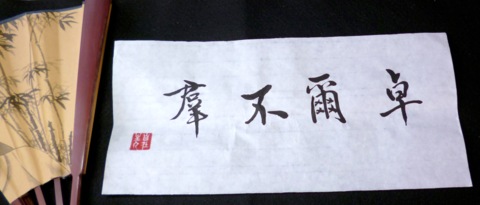 卓爾不羣